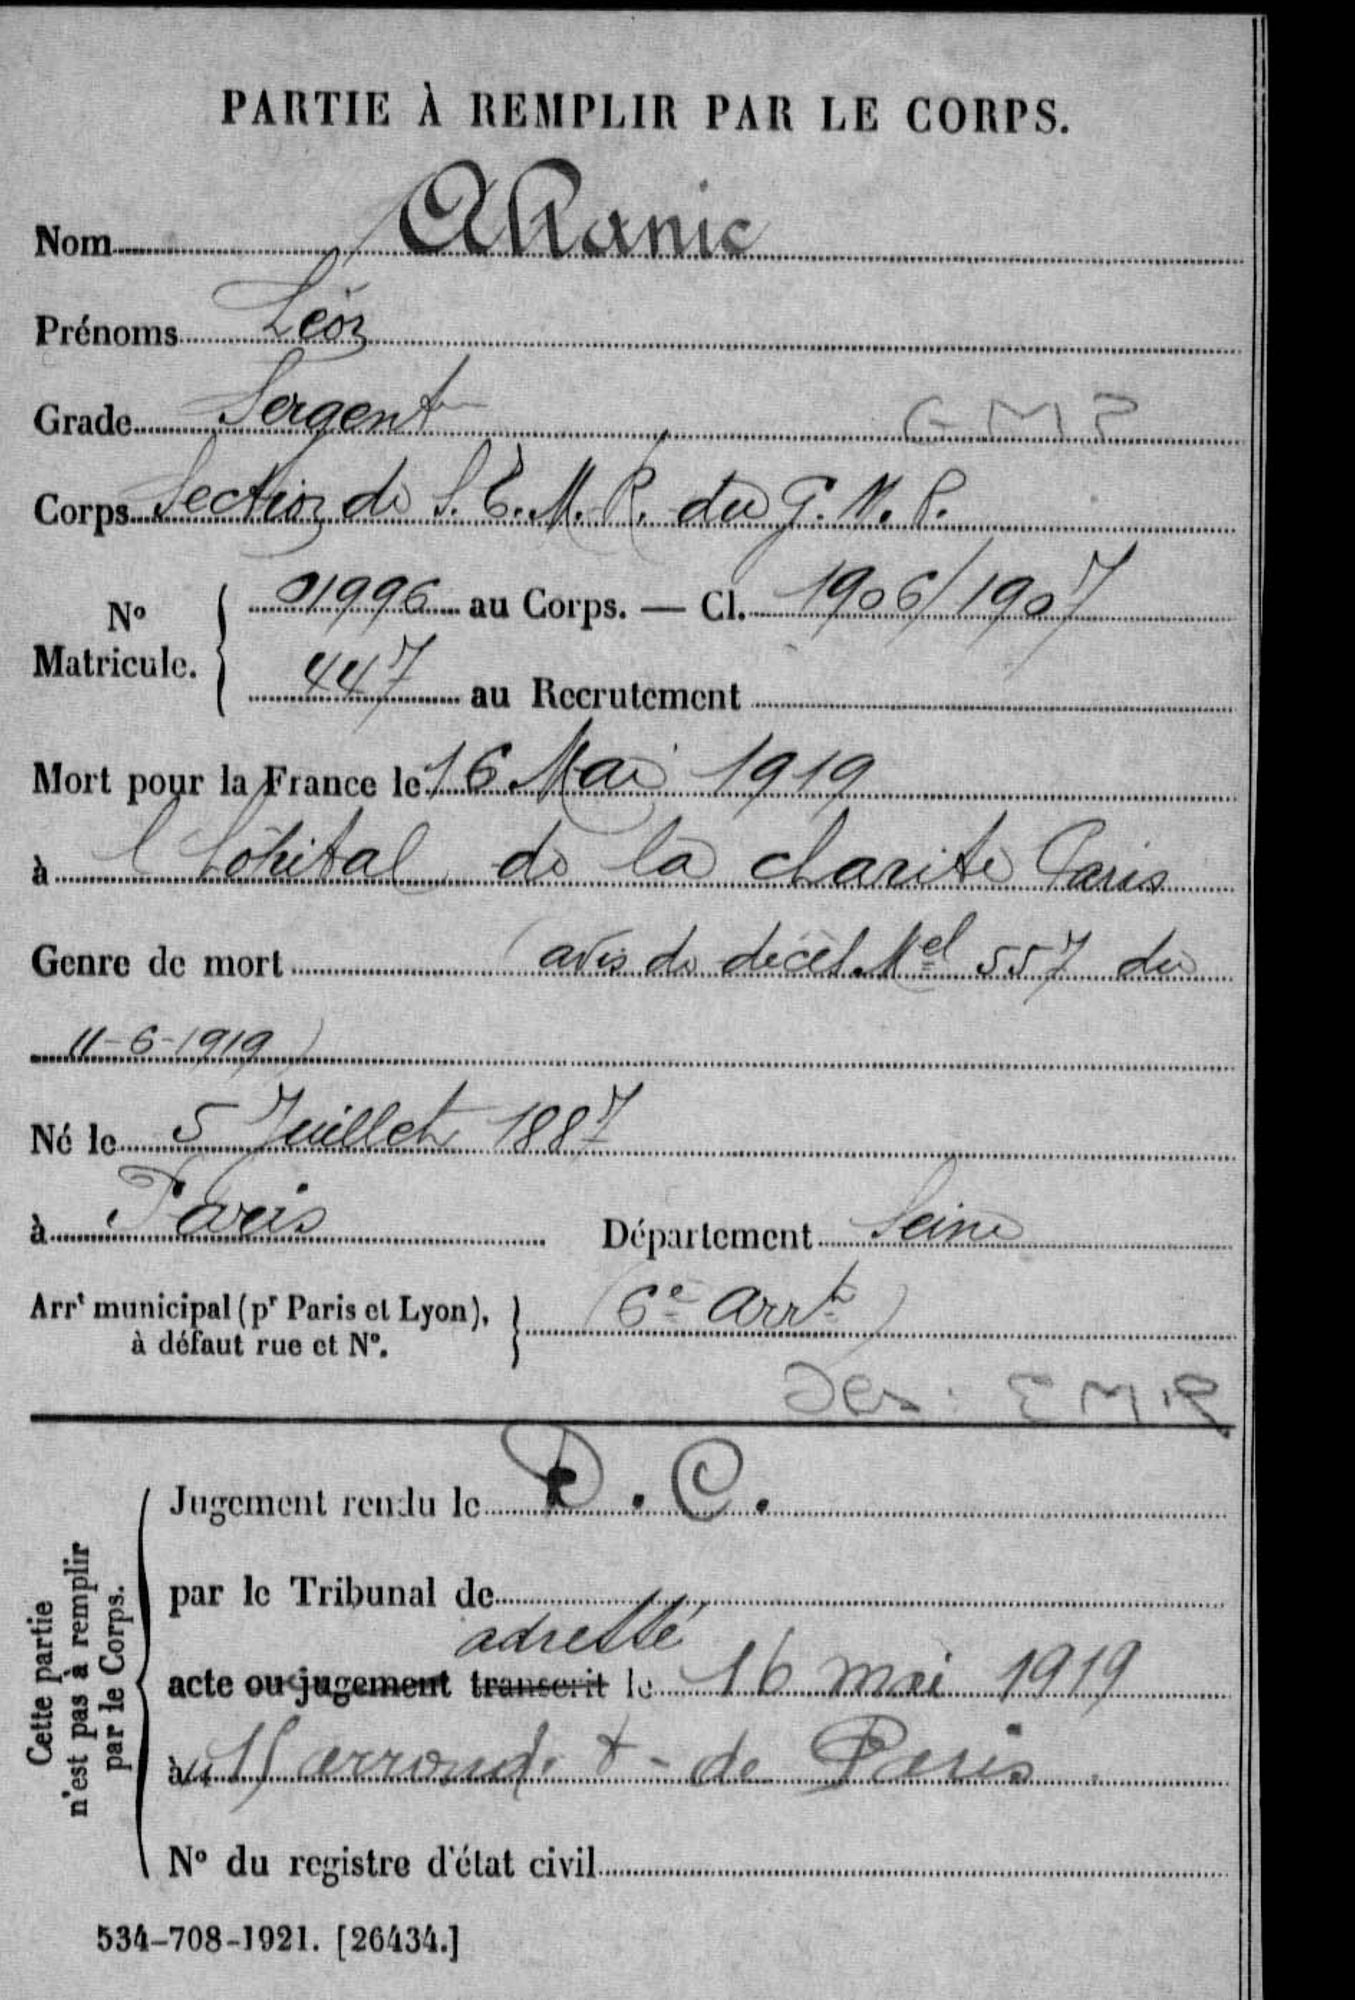 PARTIE À REMPLIR PAR LE CORPS.
Nom Allanic
Prénoms Léon
Grade Sergent G M P
Corps Section de S. E. M. R. du G. M. P.
No Matricule. 01996 au Corps. — Cl. 1906/1907
447 au Recrutement
Mort pour la France le 16 Mai 1919
à l'hôpital de la charité Paris
Genre de mort (avis de décès Mel 557 du
11-6-1919)
Né le 5 Juillet 1887
à Paris Département Seine
Arrt municipal (pr Paris et Lyon), à défaut rue et No. (6e arrt)
E M R
Cette partie n'est pas à remplir par le Corps.
Jugement rendu le D. C.
par le Tribunal de
adressé
acte ou jugement transcrit le 16 mai 1919
au arrondt - de Paris
No du registre d'état civil
534-708-1921. [26434.]